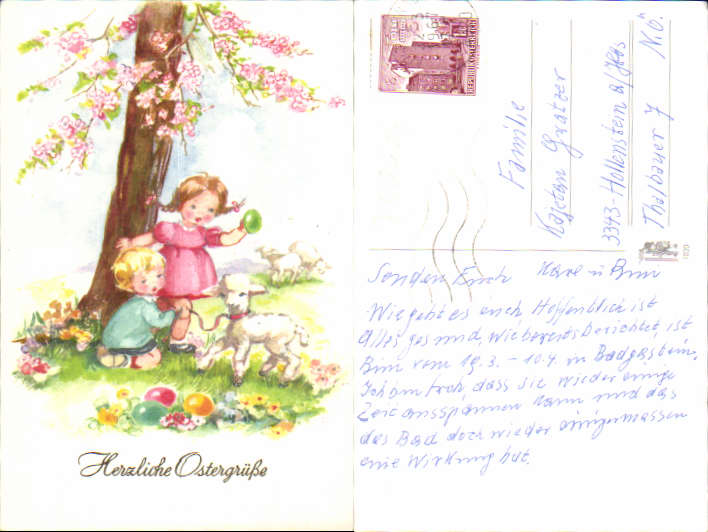 Herzliche Ostergrüße
REPUBLIK ÖSTERREICH
Familie
Kajetan Gratzer
3343-Hollenstein a/Ybbs
Thalbauer 7 N.Ö.
1020
Senden Euch Karl u
Wie geht es euch Hoffendlich ist
Alles gesund, wie bereits berichtet, ist
vom 19.3. – 10.4 in Badgastein.
Ich bin froh, dass sie wieder einige
Zeit ausspannen kann und das
das Bad doch wieder einigermassen
eine Wirkung hat.